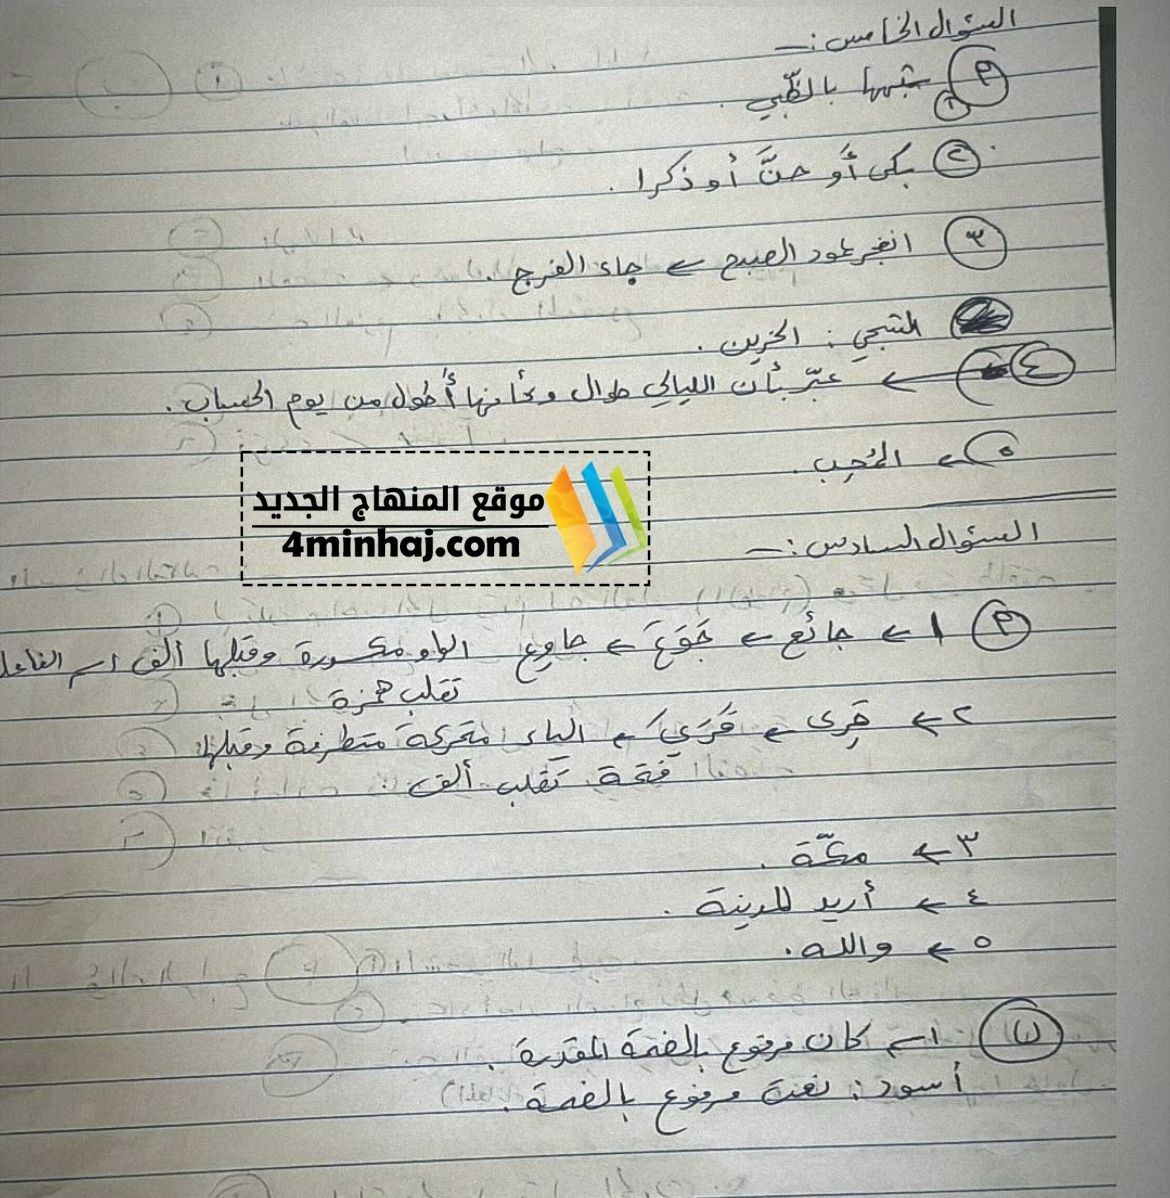 السؤال الخامس :-
أ ١ شبهها بالظّبي .
٢ بكى أَو حنَّ أو ذكرا .
٣ انفجر عمود الصبح ← جاء الفرج .
الشجي : الحزين .
٤ ← عبّر بأن الليالي طوال وكأنها أطول من يوم الحساب .
٥ ← المُحِب .
موقع المنهاج الجديد
4minhaj.com
السؤال السادس :-
أ ١ ← جائع ← جَوَعَ ← جاوِع الواو مكسورة وقبلها ألف اسم الفاعل
تقلب همزة
٢ ← قِرى ← قَرَيَ ← الياء متحركة متطرفة وقبلها
فتحة تقلب ألف .
٣ ← مكّة .
٤ ← أريد المدينة .
٥ ← والله .
ب اسم كان مرفوع بالضمة المقدرة .
أسود : نعت مرفوع بالضمة .